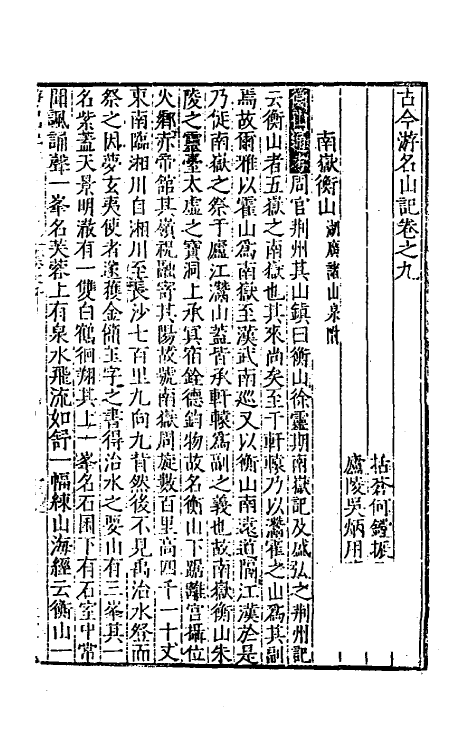 古今游名山記卷之九
括蒼何鏜振
廬陵吳炳用
南嶽衡山 湖廣諸山泉附
衡山總考周官荆州其山鎮曰衡山徐靈期南嶽記及盛弘之荆州記
云衡山者五嶽之南嶽也其來尚矣至于軒轅乃以灊霍之山爲其副
焉故爾雅以霍山爲南嶽至漢武南巡又以衡山南遠道隔江漢於是
乃徙南嶽之祭于廬江灊山蓋皆承軒轅爲副之義也故南嶽衡山朱
陵之靈臺太虛之寶洞上承冥宿銓德鈞物故名衡山下踞離宫攝位
火鄉赤帝館其嶺祝融寄其陽故號南嶽周旋數百里高四千一十丈
東南臨湘川自湘川至長沙七百里九向九背然後不見禹治水祭而
祭之因夢玄夷使者遂獲金簡玉字之書得治水之要山有三峯其一
名紫蓋天景明澈有一雙白鶴徊翔其上一峯名石囷下有石室中常
聞諷誦聲一峯名芙蓉上有泉水飛流如舒一幅練山海經云衡山一